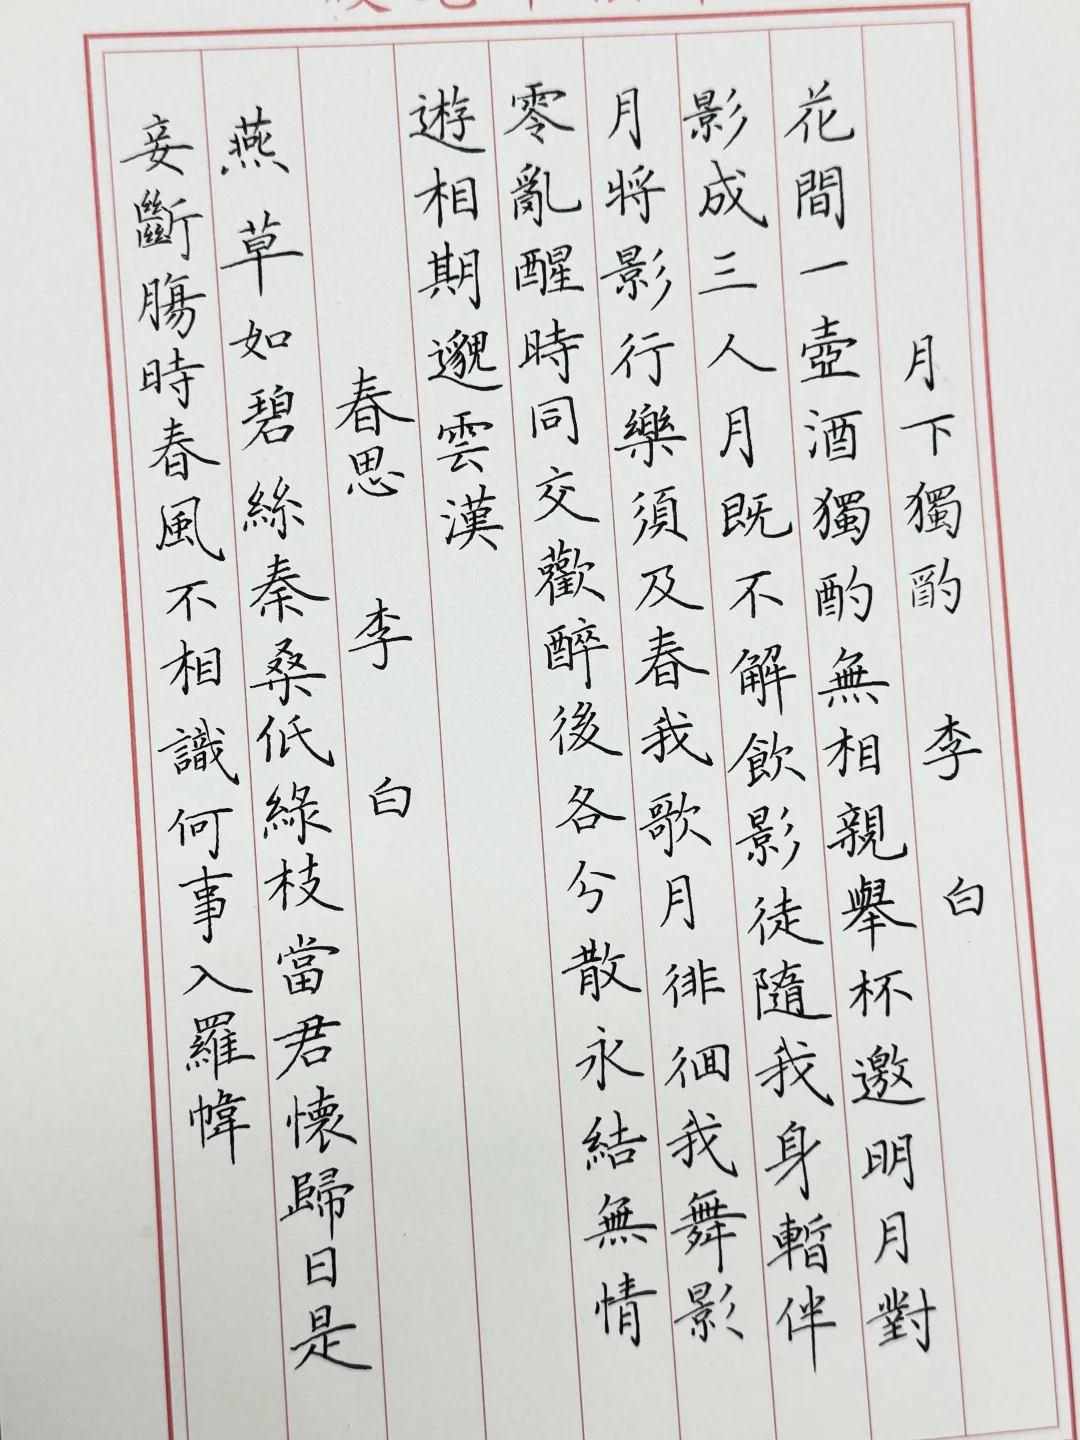 月下獨酌 李白
花間一壺酒獨酌無相親舉杯邀明月對
影成三人月既不解飲影徒隨我身暫伴
月將影行樂須及春我歌月徘徊我舞影
零亂醒時同交歡醉後各分散永結無情
遊相期邈雲漢
春思 李白
燕草如碧絲秦桑低綠枝當君懷歸日是
妾斷腸時春風不相識何事入羅幃